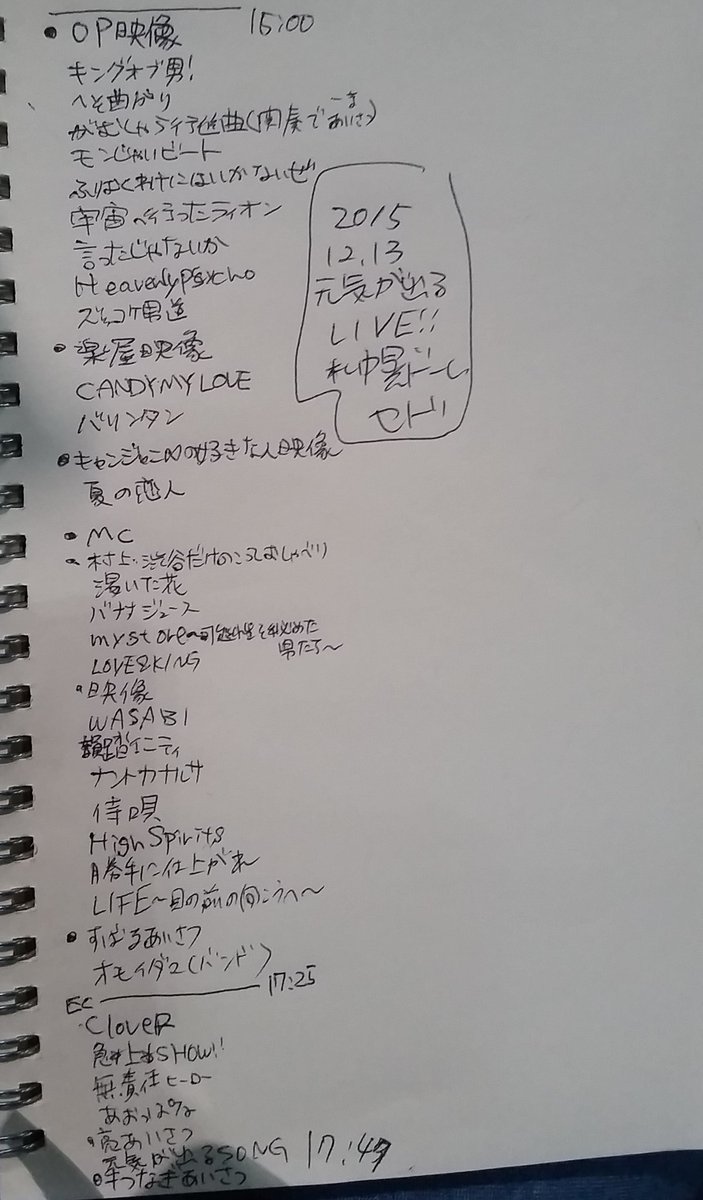 OP映像 15:00
キングオブ男!
へそ曲がり
がむしゃら行進曲(間奏であいさつ)
モンじゃいビート
ふりほどくわけにはいかないぜ
宇宙へ行ったライオン
言ったじゃないか
HeavenlyPsycho
ズッコケ男道
楽屋映像
CANDYMYLOVE
バリンタン
キャンジャニ∞の好きな人映像
夏の恋人
MC
村上・渋谷だけのこっておしゃべり
渇いた花
バナナジュース
mystore〜可能性を秘めた
男たち〜
LOVE&KING
映像
WASABI
韻踏ィニティ
ナントカナルサ
侍唄
HighSpirits
勝手に仕上がれ
LIFE〜目の前の向こうへ〜
すばるあいさつ
オモイダマ(バンド)
17:25
EC
CloveR
急☆上☆SHOW!!
無責任ヒーロー
あおっぱな
亮あいさつ
元気が出るSONG 17:47
手つなぎあいさつ
2015
12,13
元気が出る
LIVE!!
札幌ドーム
セトリ